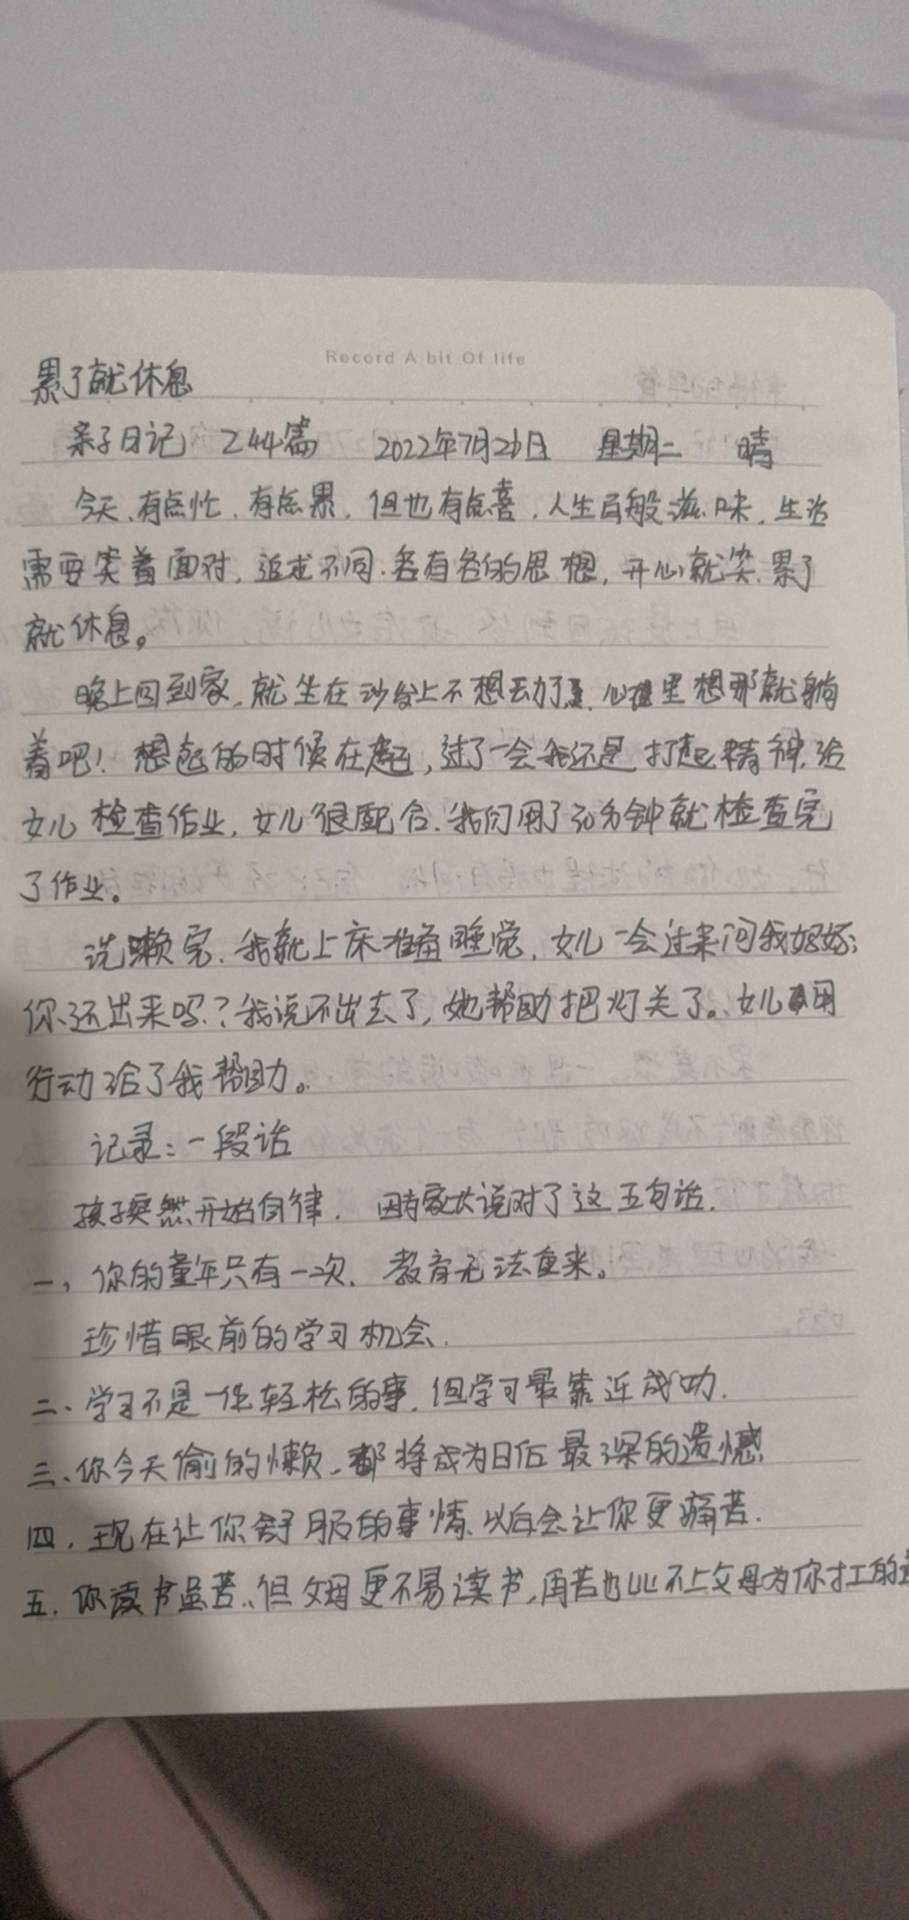 Record A bit Of life
累了就休息
亲子日记 244篇 2022年7月26日 星期二 晴
今天、有点忙、有点累、但也有点喜、人生百般滋味、生活
需要笑着面对，追求不同、各有各的思想，开心就笑、累了
就休息。
晚上回到家、就坐在沙发上不想动了、心里想那就躺
着吧！想起的时候在起，过了一会我还是打起精神、给
女儿检查作业，女儿很配合、我们用了30分钟就检查完
了作业。
洗懒完、我就上床准备睡觉，女儿一会过来问我妈妈；
你还出来吗？我说不出去了，她帮助把灯关了。女儿用
行动给了我帮助。
记录：一段话
孩子突然开始自律、因为家长说对了这五句话.
一，你的童年只有一次、教育无法重来。
珍惜眼前的学习机会.
二、学习不是一件轻松的事、但学习最靠近成功.
三、你今天偷的懒、都将成为日后最深的遗憾
四、现在让你舒服的事情、以后会让你更痛苦.
五、你读书虽苦、但父母更不易读书，再苦也比不上父母为你打工的